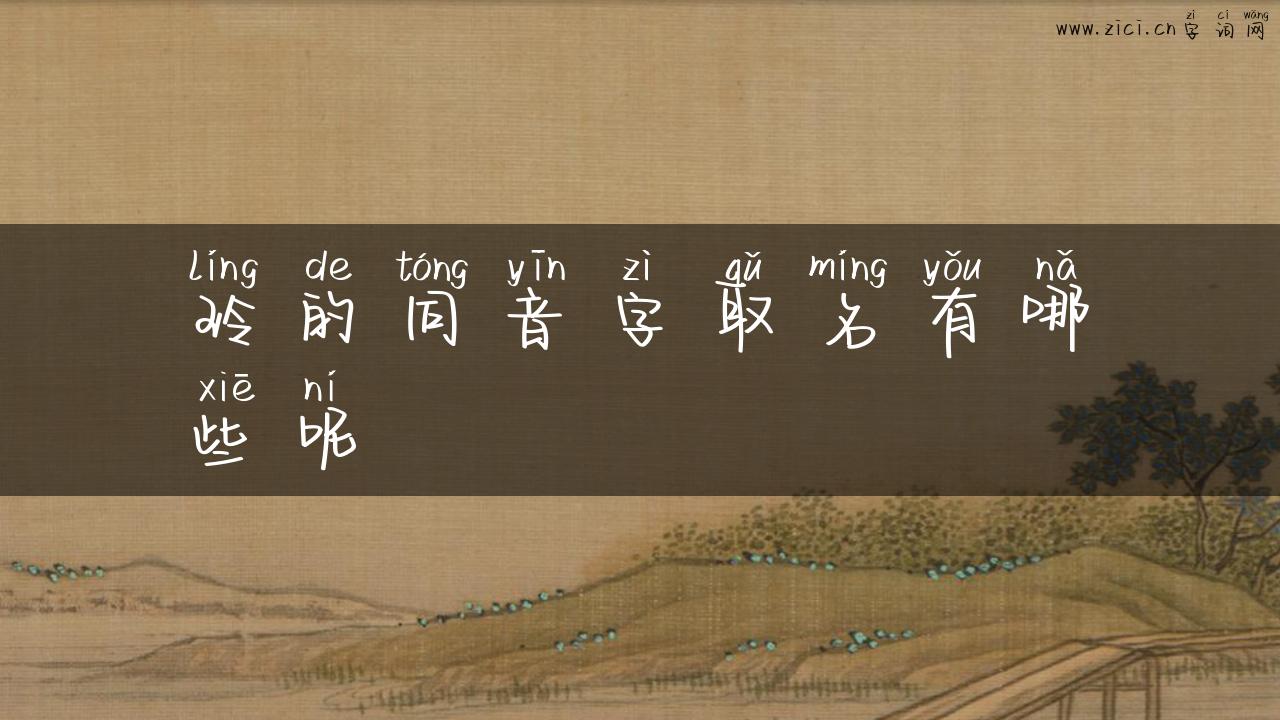 zì cí wǎng
www.zici.cn字词网
líng de tóng yīn zì qǔ míng yǒu nǎ
玲的同音字取名有哪
xiē ní
些呢